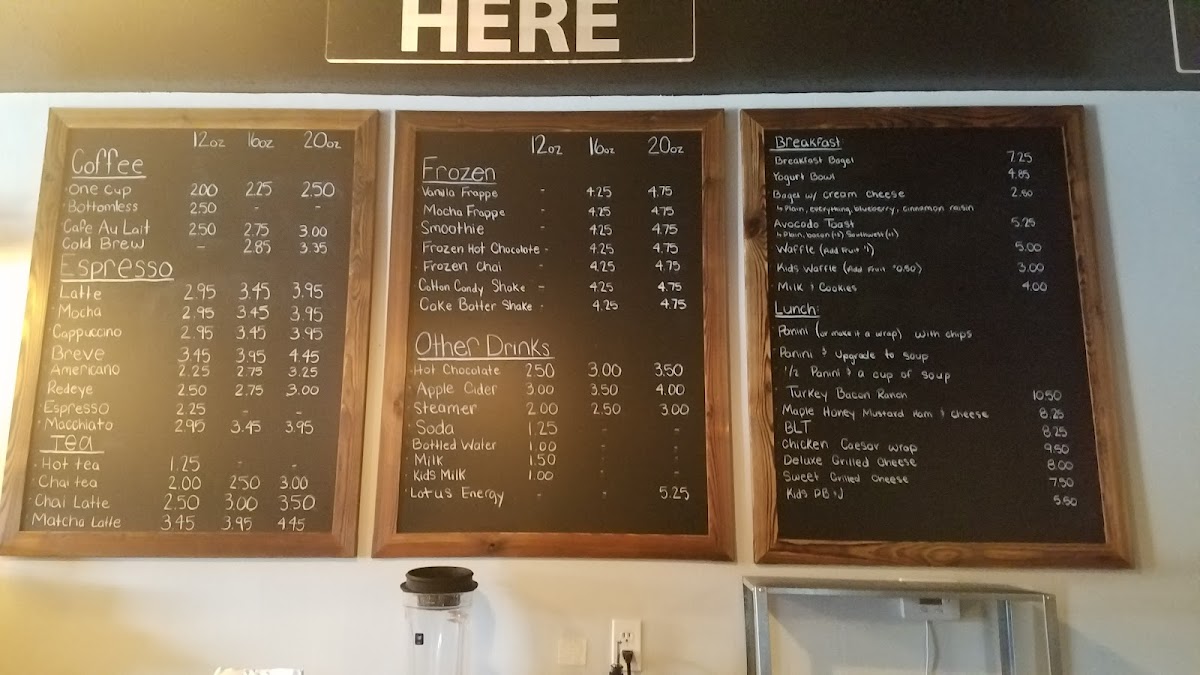 HERE
12oz 16oz 20oz
Coffee
One Cup 2.00 2.25 2.50
Bottomless 2.50 - -
Cafe Au Lait 2.50 2.75 3.00
Cold Brew - 2.85 3.35
Espresso
Latte 2.95 3.45 3.95
Mocha 2.95 3.45 3.95
Cappuccino 2.95 3.45 3.95
Breve 3.45 3.95 4.45
Americano 2.25 2.75 3.25
Redeye 2.50 2.75 3.00
Espresso 2.25 - -
Macchiato 2.95 3.45 3.95
Tea
Hot tea 1.25 - -
Chai tea 2.00 2.50 3.00
Chai Latte 2.50 3.00 3.50
Matcha Latte 3.45 3.95 4.45
12oz 16oz 20oz
Frozen
Vanilla Frappe - 4.25 4.75
Mocha Frappe - 4.25 4.75
Smoothie - 4.25 4.75
Frozen Hot Chocolate - 4.25 4.75
Frozen Chai - 4.25 4.75
Cotton Candy Shake - 4.25 4.75
Cake Batter Shake - 4.25 4.75
Other Drinks
Hot Chocolate 2.50 3.00 3.50
Apple Cider 3.00 3.50 4.00
Steamer 2.00 2.50 3.00
Soda 1.25 - -
Bottled Water 1.00 - -
Milk 1.50 - -
Kids Milk 1.00 - -
Lotus Energy - - 5.25
Breakfast
Breakfast Bagel 7.25
Yogurt Bowl 4.85
Bagel w/ cream cheese 2.80
↳ Plain, everything, blueberry, cinnamon raisin
Avocado Toast 5.25
↳ Plain, bacon Southwest
Waffle (Add Fruit 1) 5.00
Kids Waffle (Add Fruit 0.50) 3.00
Milk & Cookies 4.00
Lunch:
Panini (or make it a wrap) with chips
Panini & Upgrade to soup
1/2 Panini & a cup of soup
Turkey Bacon Ranch 10.50
Maple Honey Mustard Ham & Cheese 8.25
BLT 8.25
Chicken Caesar wrap 9.50
Deluxe Grilled Cheese 8.00
Sweet Grilled Cheese 7.50
Kids PB & J 5.50